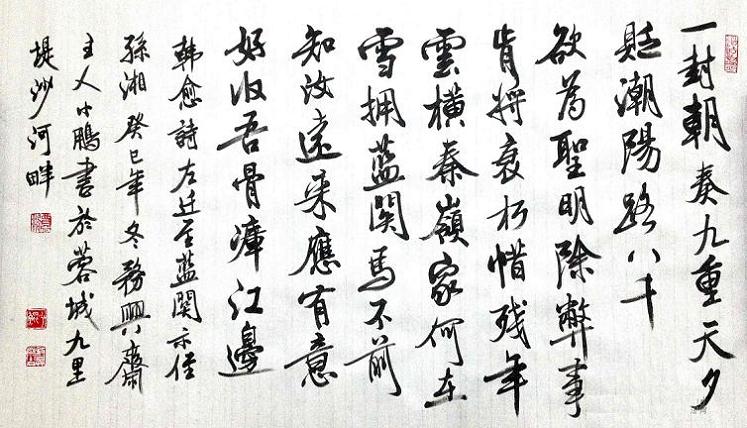 一封朝奏九重天夕
貶潮陽路八千
欲為聖明除弊事
肯將衰朽惜残年
雲橫秦嶺家何在
雪拥藍関馬不前
知汝遠来應有意
好收吾骨瘴江邊
韩愈詩左迁至藍関示侄
孫湘癸巳年冬務興齋
主人小鵬書於蓉城九里
堤沙河畔